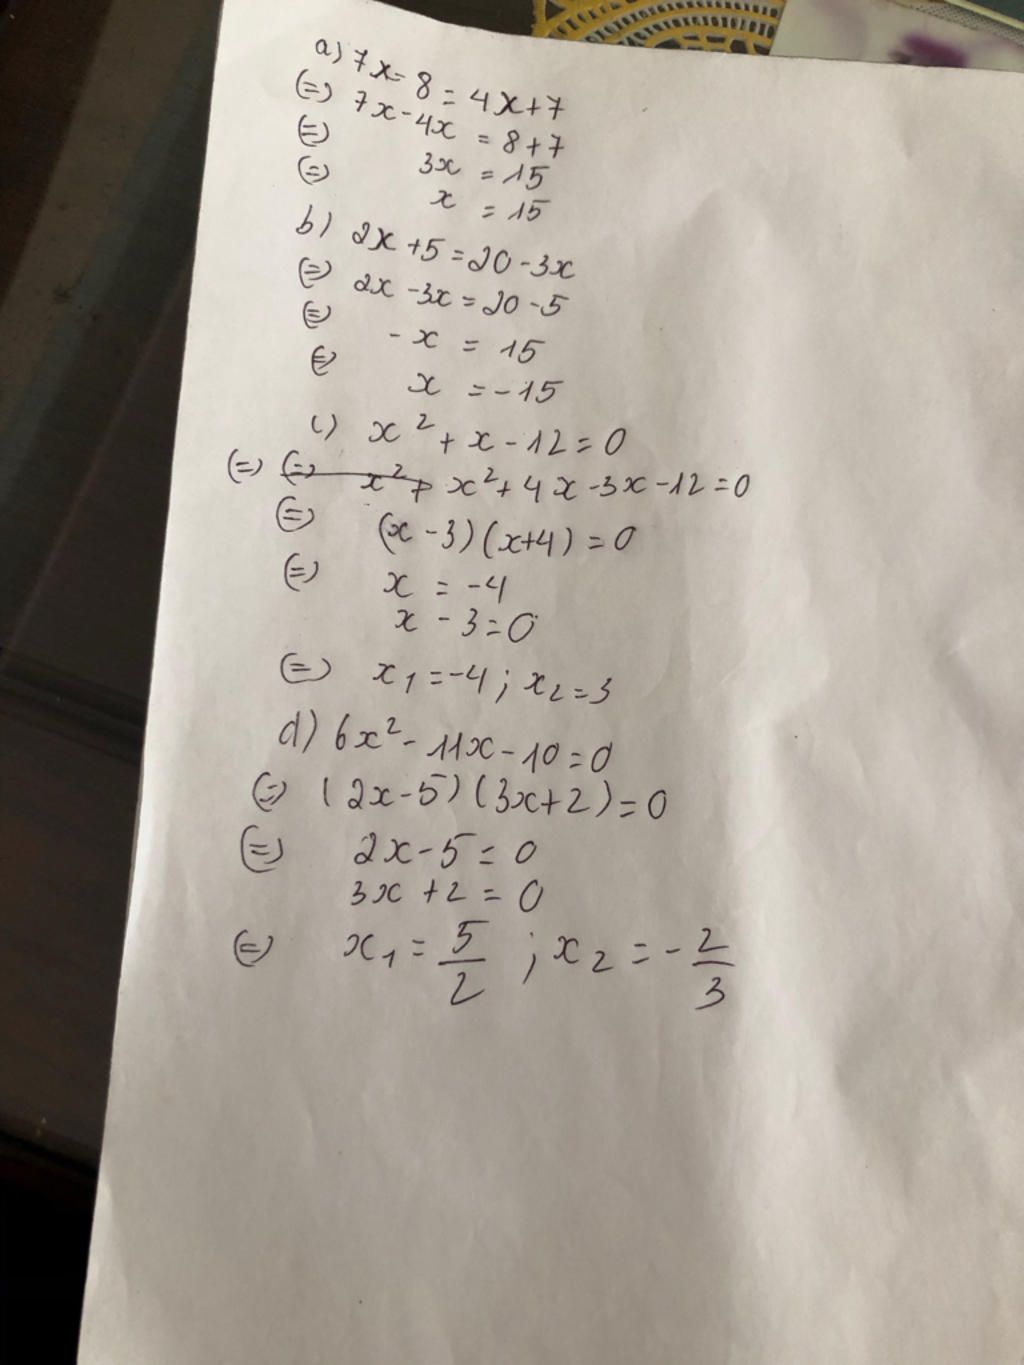 a) 7x - 8 = 4x + 7
(=) 7x - 4x = 8 + 7
(=) 3x = 15
(=) x = 15
b) 2x + 5 = 20 - 3x
(=) 2x - 3x = 20 - 5
(=) - x = 15
(=) x = - 15
c) x² + x - 12 = 0
(=) (=) x² + x² + 4x - 3x - 12 = 0
(=) (x - 3) (x + 4) = 0
(=) x = - 4
x - 3 = 0
(=) x₁ = - 4 ; x₂ = 3
d) 6x² - 11x - 10 = 0
(=) (2x - 5) (3x + 2) = 0
(=) 2x - 5 = 0
3x + 2 = 0
(=) x₁ = 5/2 ; x₂ = - 2/3